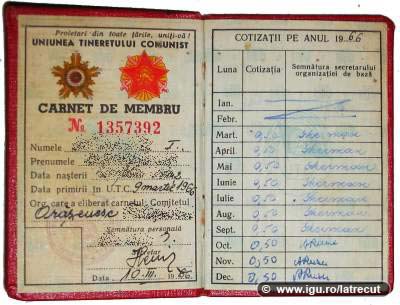 Proletari din toate țările, uniți-vă!
UNIUNEA TINERETULUI COMUNIST
CARNET DE MEMBRU
№ 1357392
Numele
Prenumele
Data nașterii
Data primirii în U.T.C. 9 martie 1966
Org. care a eliberat carnetul: Comitetul
Orășenesc
Semnătura personală
Secretar
Data 10.III.
COTIZAȚII PE ANUL 1966
Luna Cotizația Semnătura secretarului organizației de bază
Ian.
Febr.
Mart. 0,50
April. 0,50
Mai 0,50
Iunie 0,50
Iulie 0,50
Aug. 0,50
Sept. 0,50
Oct. 0,50
Nov. 0,50
Dec. 0,50
www.igu.ro/latrecut